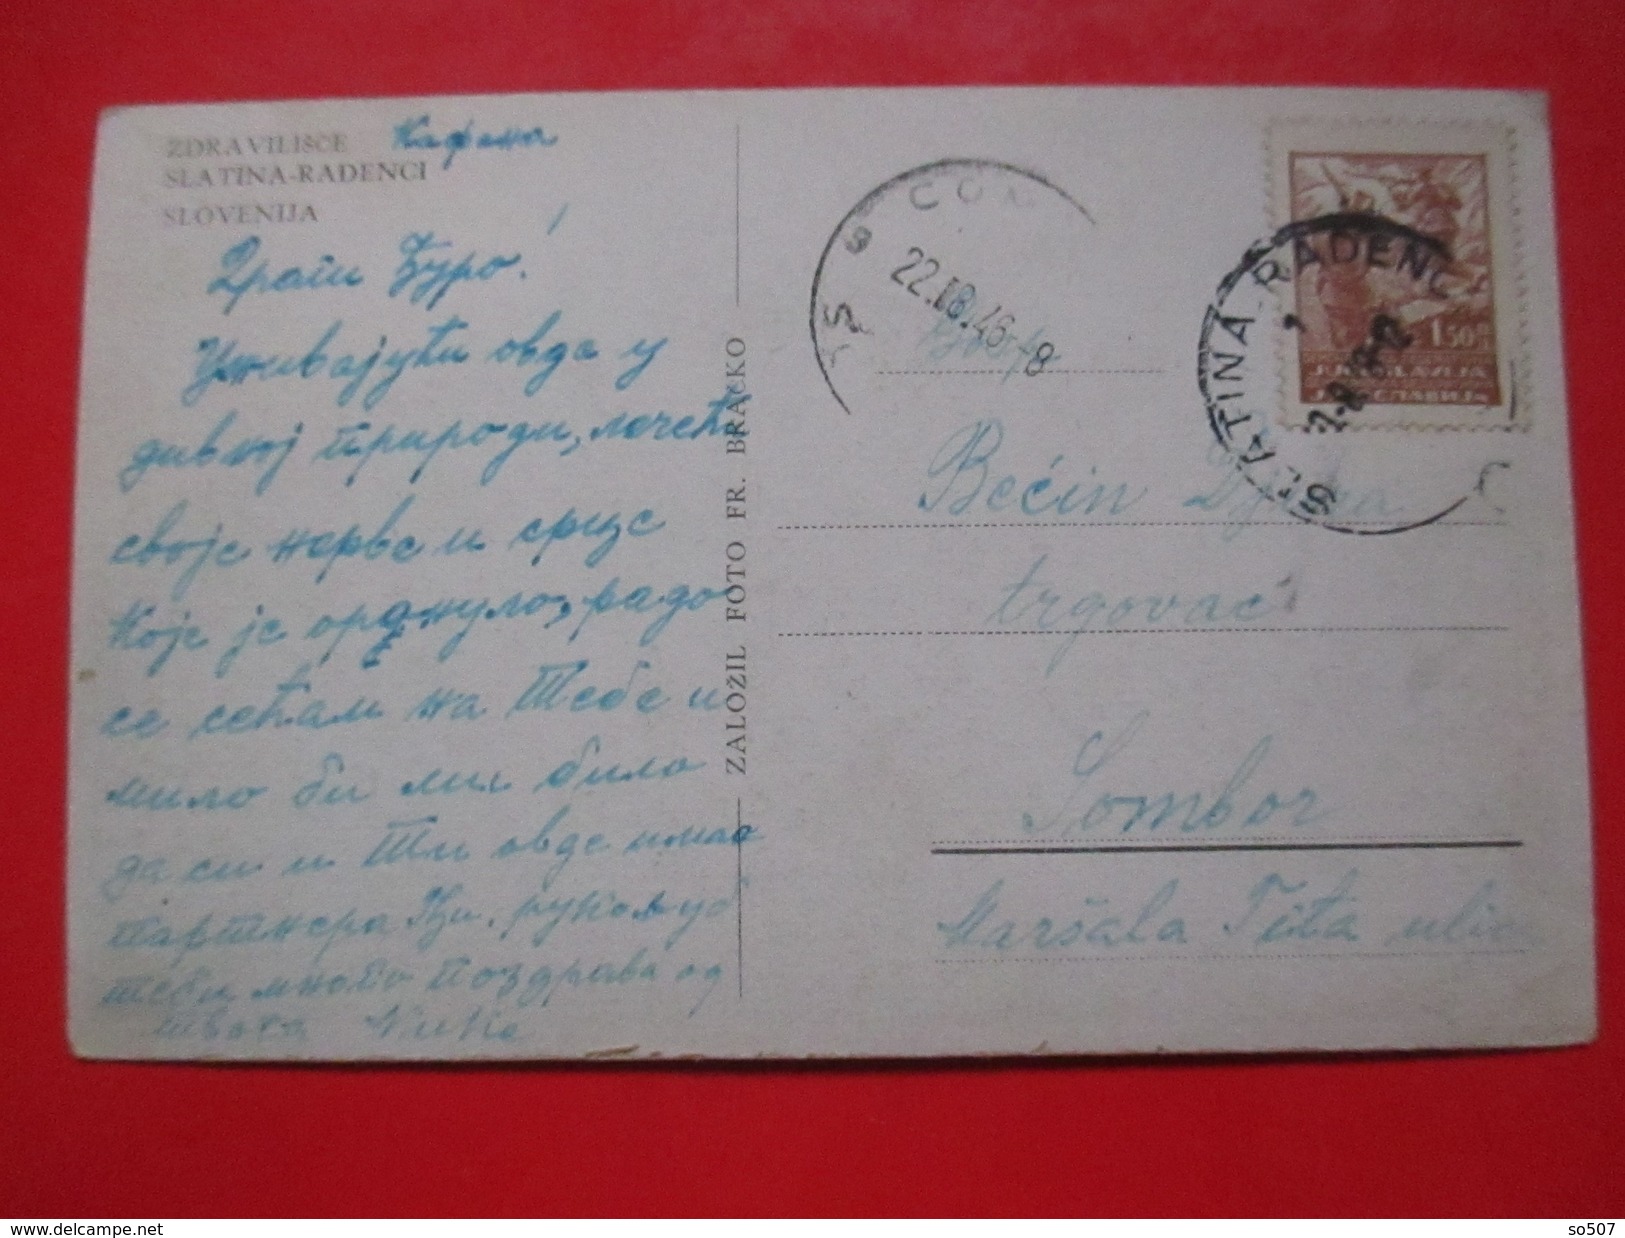 ZDRAVILIŠČE
SLATINA-RADENCI
SLOVENIJA
Кафана
Драги Ђуро!
Уживајући овде у
дивној природи, лечећи
своје нерве и срце
које је орднуло, радо
се сећам на Тебе и
мило би ми било
да си и Ти овде имао
партнера
Теби много поздрава од
твога
ZALOŽIL FOTO FR. BRAČKO
22.8.46-8
SLATINA-RADENCI
1.50
JUGOSLAVIJA
ЈУГОСЛАВИЈА
Bećin
trgovac
Sombor
Maršala Tita ulica
so507